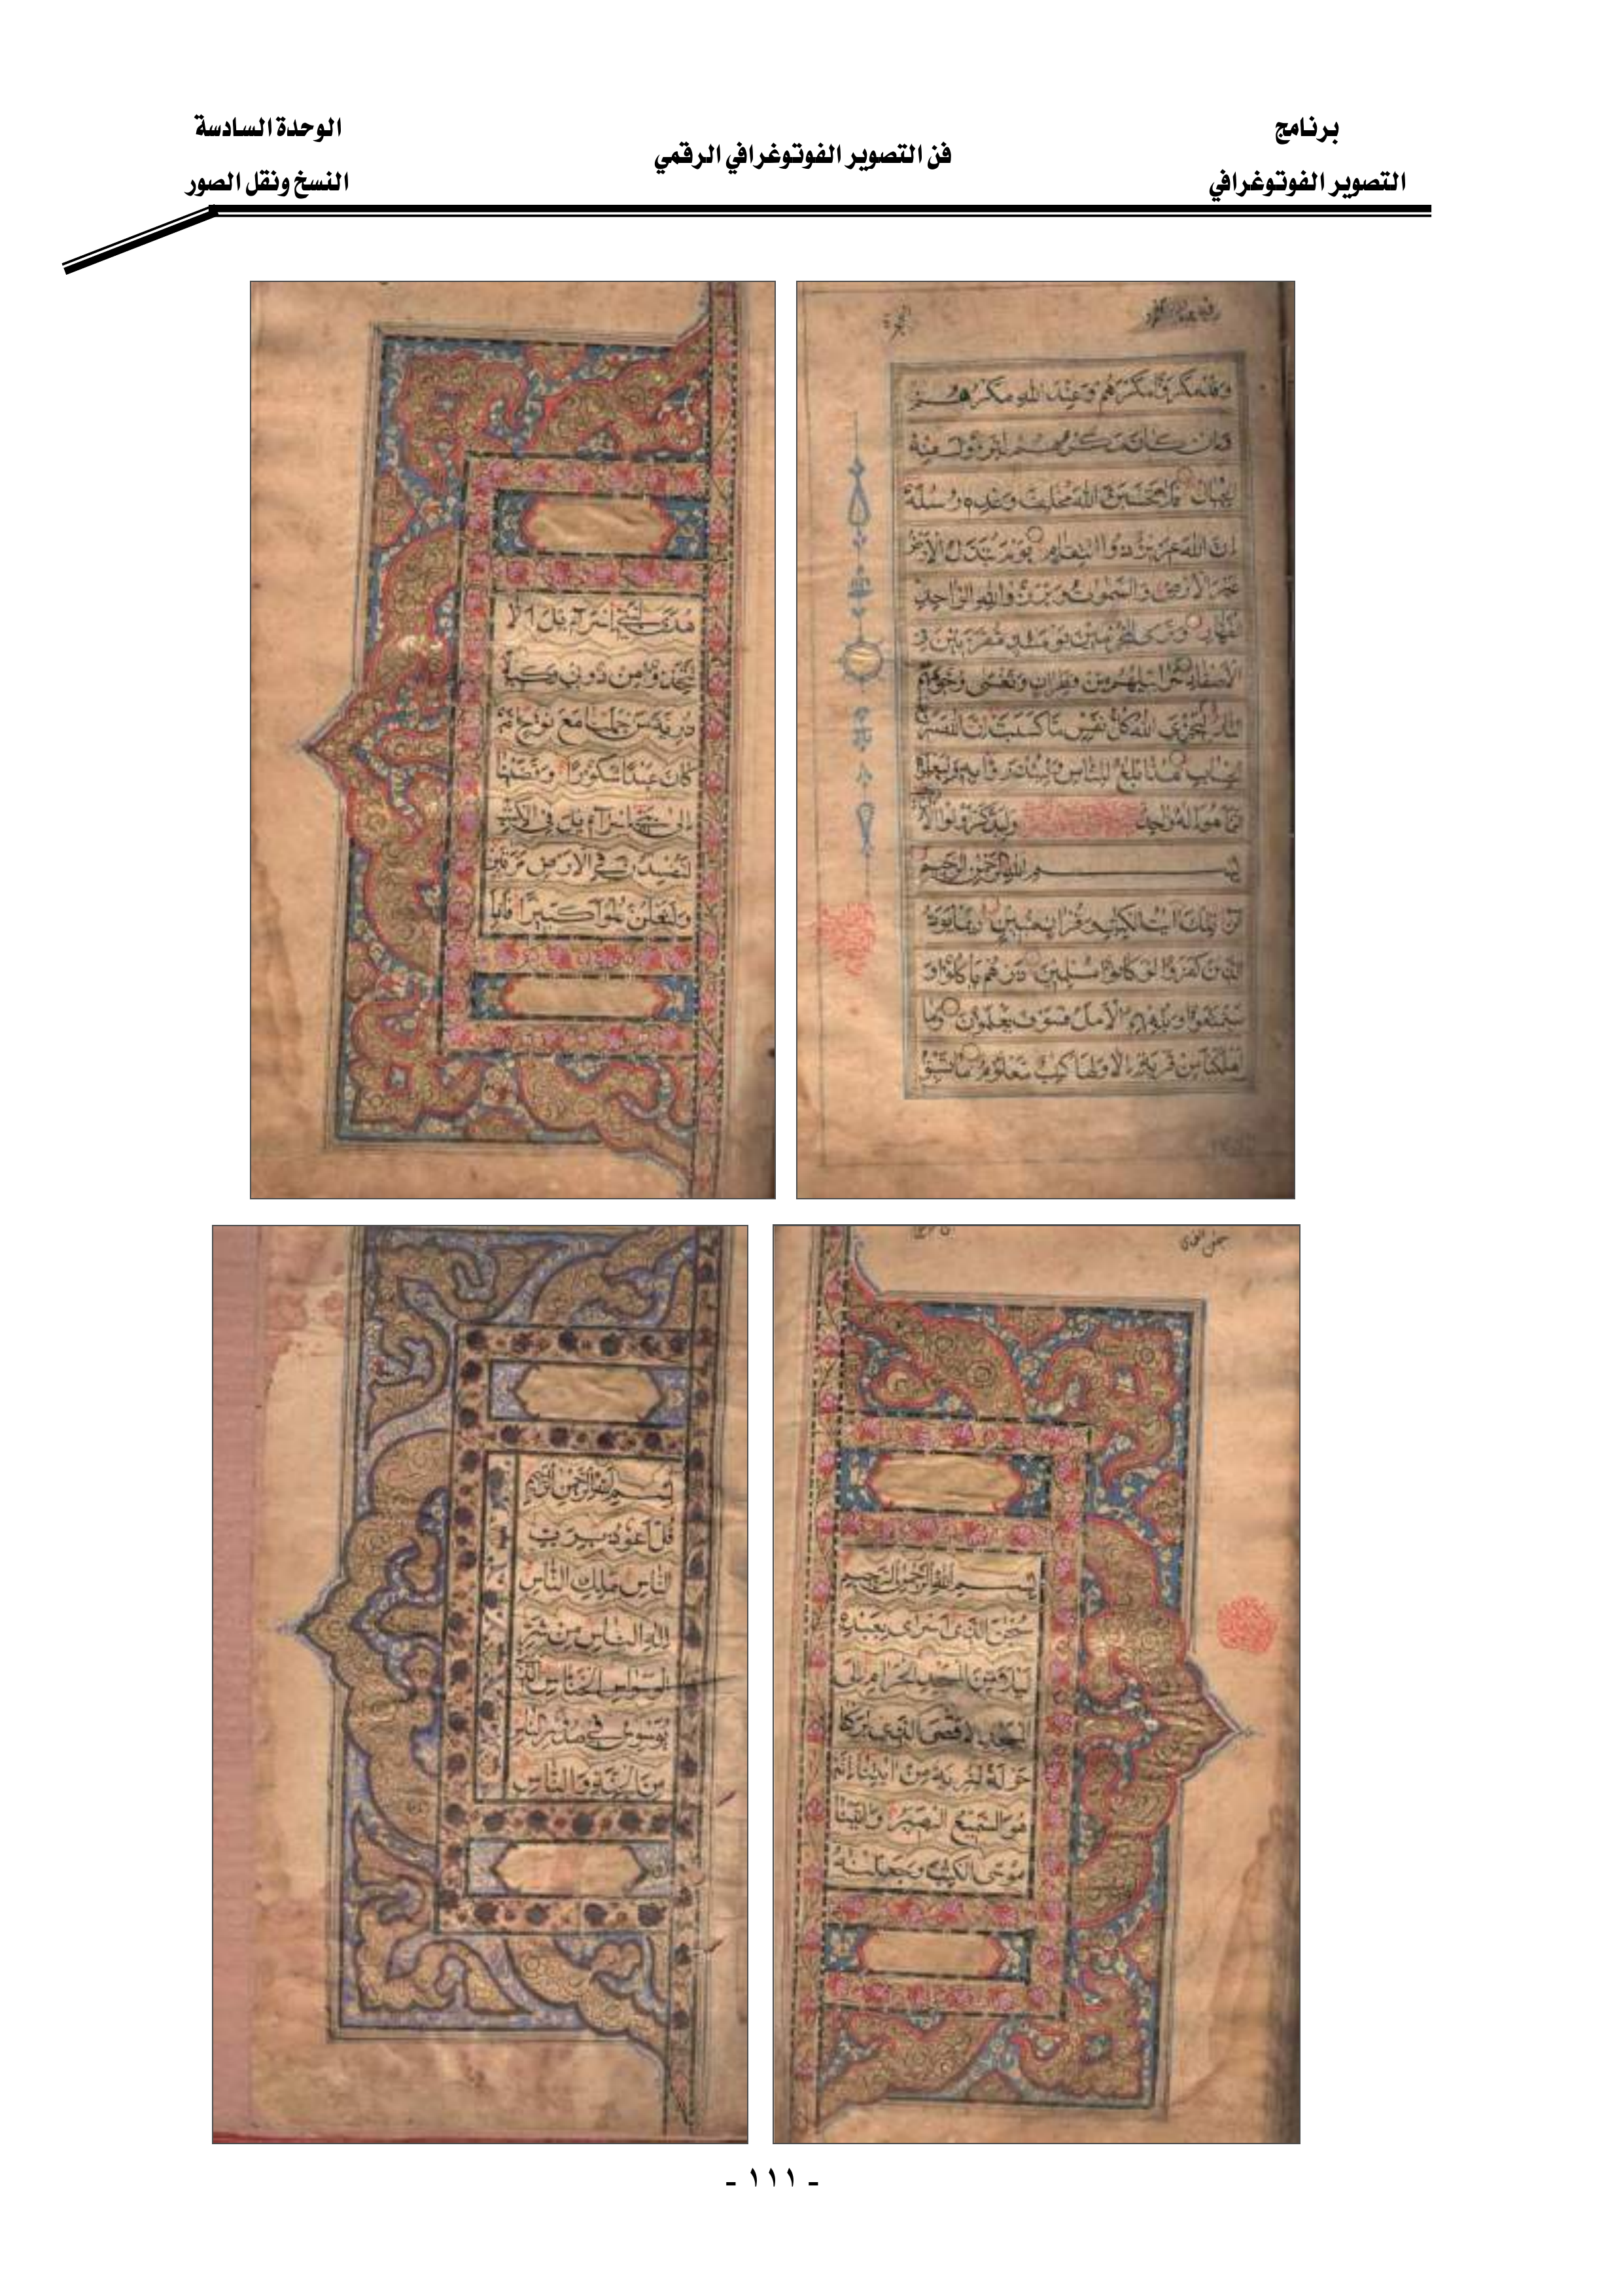 برنامج
التصوير الفوتوغرافي
فن التصوير الفوتوغرافي الرقمي
الوحدة السادسة
النسخ ونقل الصور
وقد مكروا مكرهم وعند الله مكرهم
وان كان مكرهم لتزول منه
الجبال فلا تحسبن الله مخلف وعده رسله
ان الله عزيز ذو انتقام يوم تبدل الارض
غير الارض والسموت وبرزوا لله الواحد
القهار وترى المجرمين يومئذ مقرنين في
الاصفاد سرابيلهم من قطران وتغشى وجوههم
النار ليجزي الله كل نفس ما كسبت ان الله سريع
الحساب هذا بلغ للناس ولينذروا به وليعلموا
انما هو اله واحد وليذكر اولوا الا
بسم الله الرحمن الرحيم
الر تلك ايت الكتب وقران مبين ربما يود
الذين كفروا لو كانوا مسلمين ذرهم ياكلوا و
يتمتعوا ويلههم الامل فسوف يعلمون وما
اهلكنا من قرية الا ولها كتب معلوم ما تسبق
هدى لبني اسرآءيل الا
تتخذوا من دوني وكيلا
ذرية من حملنا مع نوح انه
كان عبدا شكورا وقضينا
الى بني اسرآءيل في الكتب
لتفسدن في الارض مرتين
ولتعلن علوا كبيرا فاذا
بسم الله الرحمن الرحيم
سبحن الذي اسرى بعبده
ليلا من المسجد الحرام الى
المسجد الاقصى الذي بركنا
حوله لنريه من ايتنا انه
هو السميع البصير واتينا
موسى الكتب وجعلنه
بسم الله الرحمن الرحيم
قل اعوذ برب
الناس ملك الناس
اله الناس من شر
الوسواس الخناس الذي
يوسوس في صدور الناس
من الجنة والناس
- ١١١ -